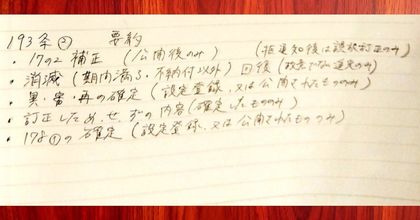 193条② 要約
・17の2 補正 (公開後のみ) (拒送知後は誤訳訂正のみ)
・消滅 (期内満了・不納付以外) 回復 (故意でない遅足のみ)
・異・審・再の確定 (設定登録、又は公開されたもののみ)
・訂正しため、せ、ずの内容(確定したもののみ)
・178①の確定 (設定登録、又は公開されたもののみ)